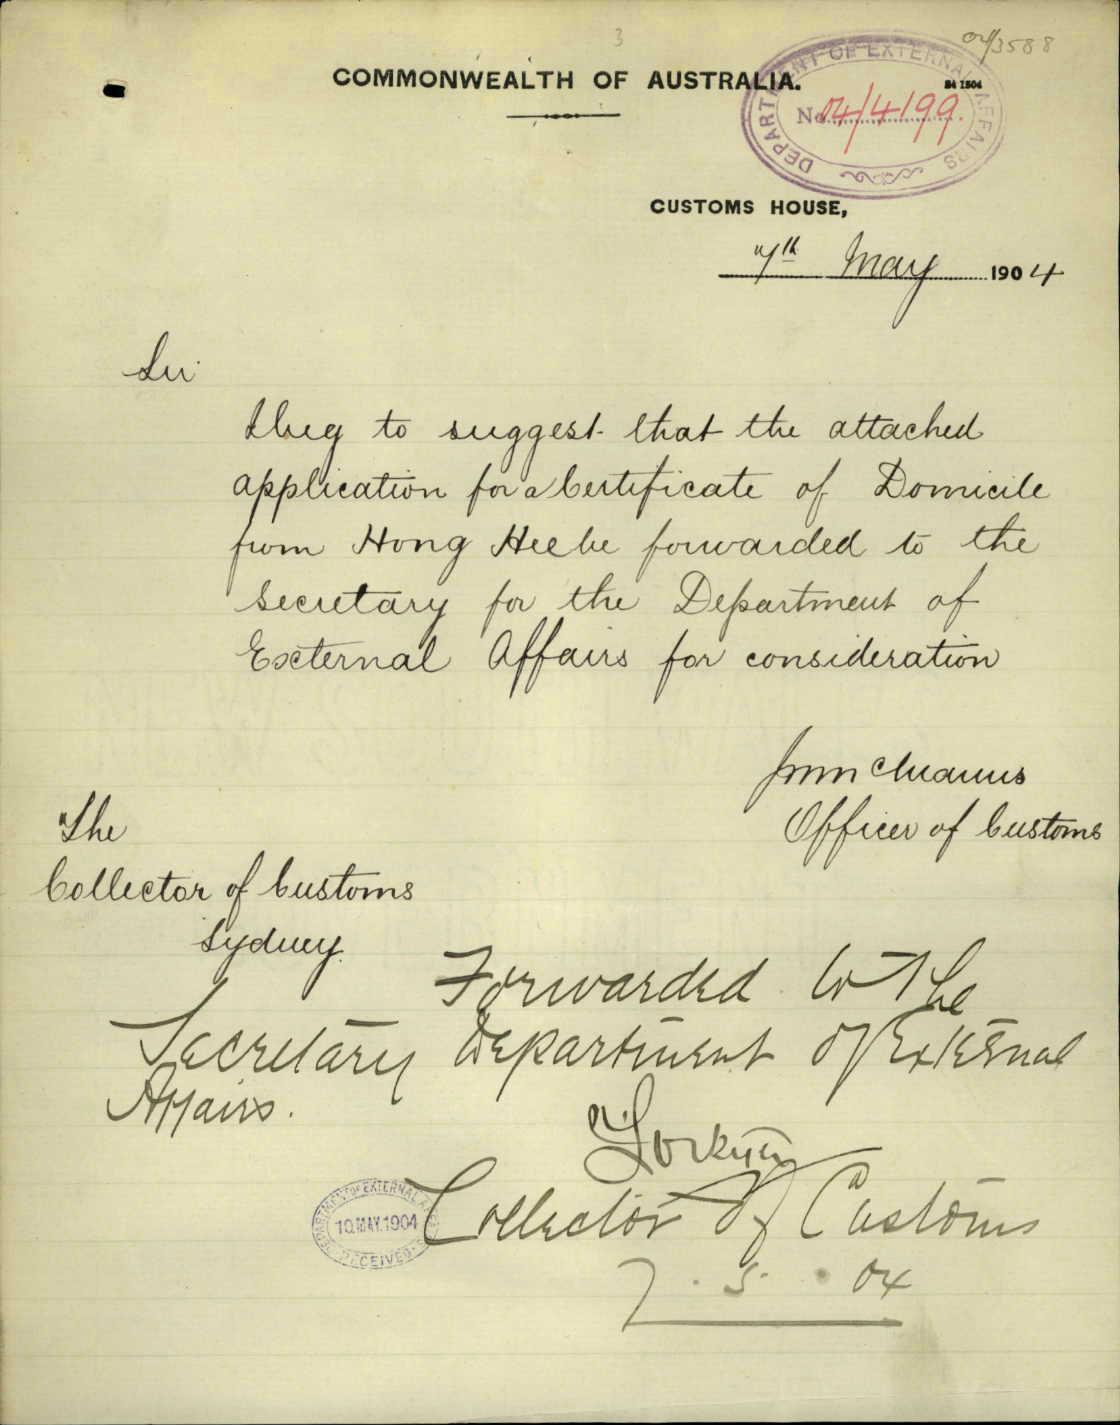 3
04/3588
COMMONWEALTH OF AUSTRALIA.
DEPARTMENT OF EXTERNAL AFFAIRS
No 04/4199.
CUSTOMS HOUSE,
7th May 1904
Sir
I beg to suggest that the attached
application for a Certificate of Domicile
from Hong Hee be forwarded to the
Secretary for the Department of
External Affairs for consideration
Officer of Customs
The
Collector of Customs
Sydney.
Forwarded to the
Secretary Department of External
Affairs.
Collector of Customs
DEPARTMENT OF EXTERNAL
10. MAY. 1904
RECEIVED
7. 5. 04